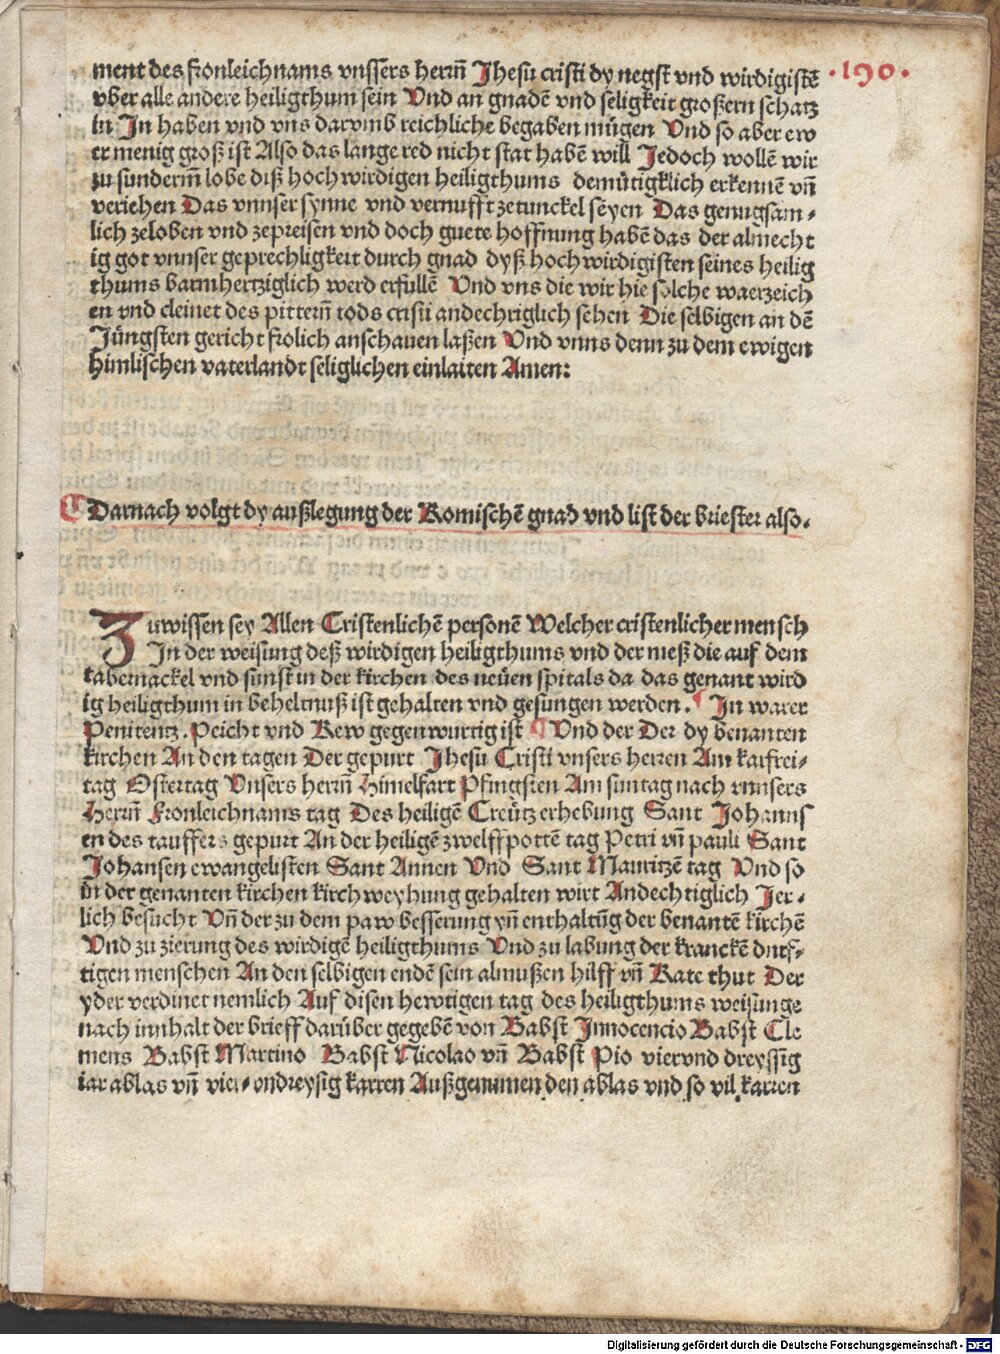 ment des fronleichnams vnssers herrn̄ Jhesu cristi dy negst vnd wirdigistē
·190·
vber alle andere heiligthum sein Vnd an gnadē vnd seligkeit großern schatz
in Jn haben vnd vns darvmb reichliche begaben mügen Vnd so aber ew
er menig groß ist Also das lange red nicht stat habē will Jedoch wollē wir
zu sunderm̄ lobe diß hoch wirdigen heiligthums demütigklich erkennē vn̄
veriehen Das vnnser synne vnd vernufft zetunckel sēyen Das genugsam⸗
lich zeloben vnd zepreisen vnd doch guete hoffnung habē das der almecht
ig got vnnser geprechligkeit durch gnad dyß hoch wirdigisten seines heilig
thums barmhertziglich werd erfullē Vnd vns die wir hie solche waerzeich
en vnd cleinet des pittern̄ tods cristi andechtiglich sehen Die selbigen an dē
Jüngsten gericht frolich anschauen laßen Vnd vnns denn zu dem ewigen
himlischen vaterlandt seliglichen einlaiten Amen:
Darnach volgt dy außlegung der Romischē gnad vnd list der briester also.
Zuwissen sey Allen Cristenlichē personē Welcher cristenlicher mensch
Jn der weisung deß wirdigen heiligthums vnd der meß die auf dem
tabernackel vnd sunst in der kirchen des neüen spitals da das genant wird
ig heiligthum in beheltnuß ist gehalten vnd gesungen werden. Jn warer
Penitentz. Peicht vnd Rew gegenwurtig ist Vnd der Der dy benanten
kirchen An den tagen Der gepurt Jhesu Cristi vnsers herren Am karfrei⸗
tag Ostertag Vnsers herrn̄ Himelfart Pfingsten Am suntag nach vnnsers
Herrn̄ Fronleichnams tag Des heiligē Creütz erhebung Sant Johanns
en des tauffers gepurt An der heiligē zwelffpottē tag Petri vn̄ pauli Sant
Johansen ewangelisten Sant Annen Vnd Sant Mauritzē tag Vnd so
in der genanten kirchen kirchweyhung gehalten wirt Andechtiglich Jer⸗
lich besucht Vn̄ der zu dem paw besserung vn̄ enthaltūg der benantē kirchē
Vnd zu zierung des wirdigē heiligthums Vnd zu labung der kranckē durf⸗
tigen menschen An den selbigen endē sein almußen hilff vn̄ Rate thut Der
yder verdinet nemlich Auf disen hewtigen tag des heiligthums weisunge
nach innhalt der brieff darüber gegebē von Babst Jnnocencio Babst Cle
mens Babst Martino Babst Nicolao vn̄ Babst Pio viervnd dreyssig
iar ablas vn̄ vier⸗vndreysig karren Außgenumen den ablas vnd so vil karren
Digitalisierung gefördert durch die Deutsche Forschungsgemeinschaft - DFG